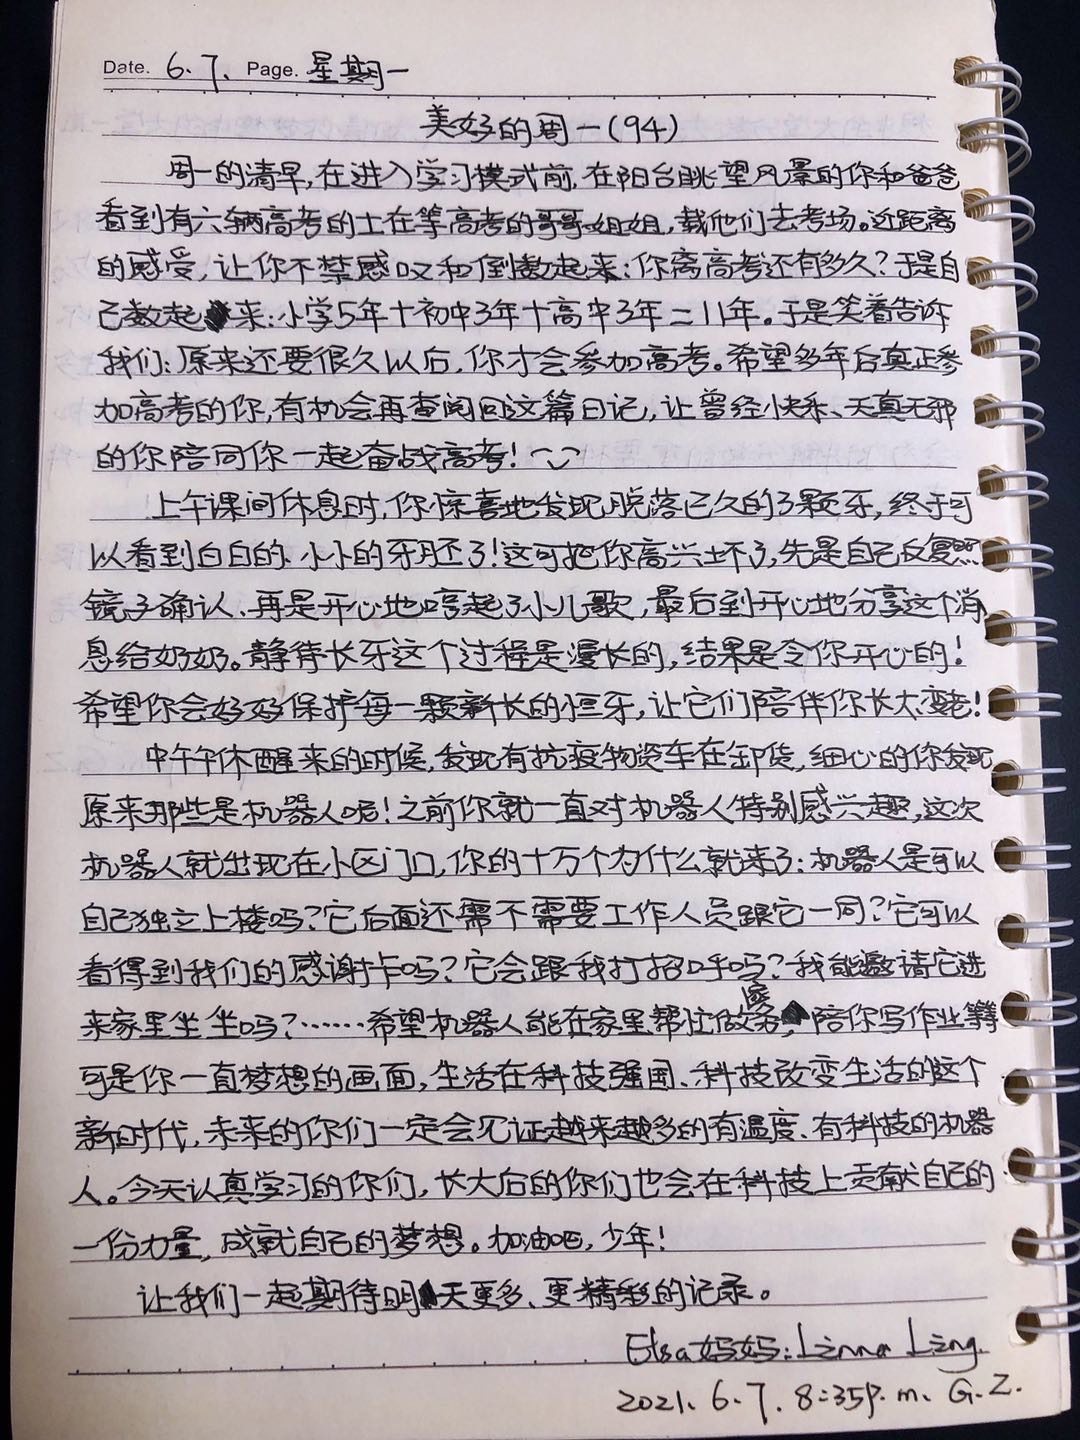 Date. 6.7. Page. 星期一
美好的周一(94)
周一的清早,在进入学习模式前,在阳台眺望风景的你和爸爸
看到有六辆高考的士在等高考的哥哥姐姐,载他们去考场。近距离
的感受,让你不禁感叹和倒数起来:你离高考还有多久?于是自
己数起来:小学5年+初中3年+高中3年=11年。于是笑着告诉
我们:原来还要很久以后,你才会参加高考。希望多年后真正参
加高考的你,有机会再查阅回这篇日记,让曾经快乐、天真无邪
的你陪同你一起奋战高考!
上午课间休息时,你惊喜地发现脱落已久的3颗牙,终于可
以看到白白的、小小的牙胚了!这可把你高兴坏了,先是自己反复照
镜子确认、再是开心地哼起了小儿歌,最后到开心地分享这个消
息给奶奶。静待长牙这个过程是漫长的,结果是令你开心的!
希望你会好好保护每一颗新长的恒牙,让它们陪伴你长大变老!
中午午休醒来的时候,发现有抗疫物资车在卸货,细心的你发现
原来那些是机器人呢!之前你就一直对机器人特别感兴趣,这次
机器人就出现在小区门口,你的十万个为什么就来了:机器人是可以
自己独立上楼吗?它后面还需不需要工作人员跟它一同?它可以
看得到我们的感谢卡吗?它会跟我打招呼吗?我能邀请它进
来家里坐坐吗?……希望机器人能在家里帮忙做家务,陪你写作业等等
可是你一直梦想的画面,生活在科技强国、科技改变生活的这个
新时代,未来的你们一定会见证越来越多的有温度、有科技的机器
人。今天认真学习的你们,长大后的你们也会在科技上贡献自己的
一份力量,成就自己的梦想。加油吧,少年!
让我们一起期待明天更多、更精彩的记录。
Elsa妈妈:Linna Ling.
2021.6.7. 8:35p.m. G.Z.